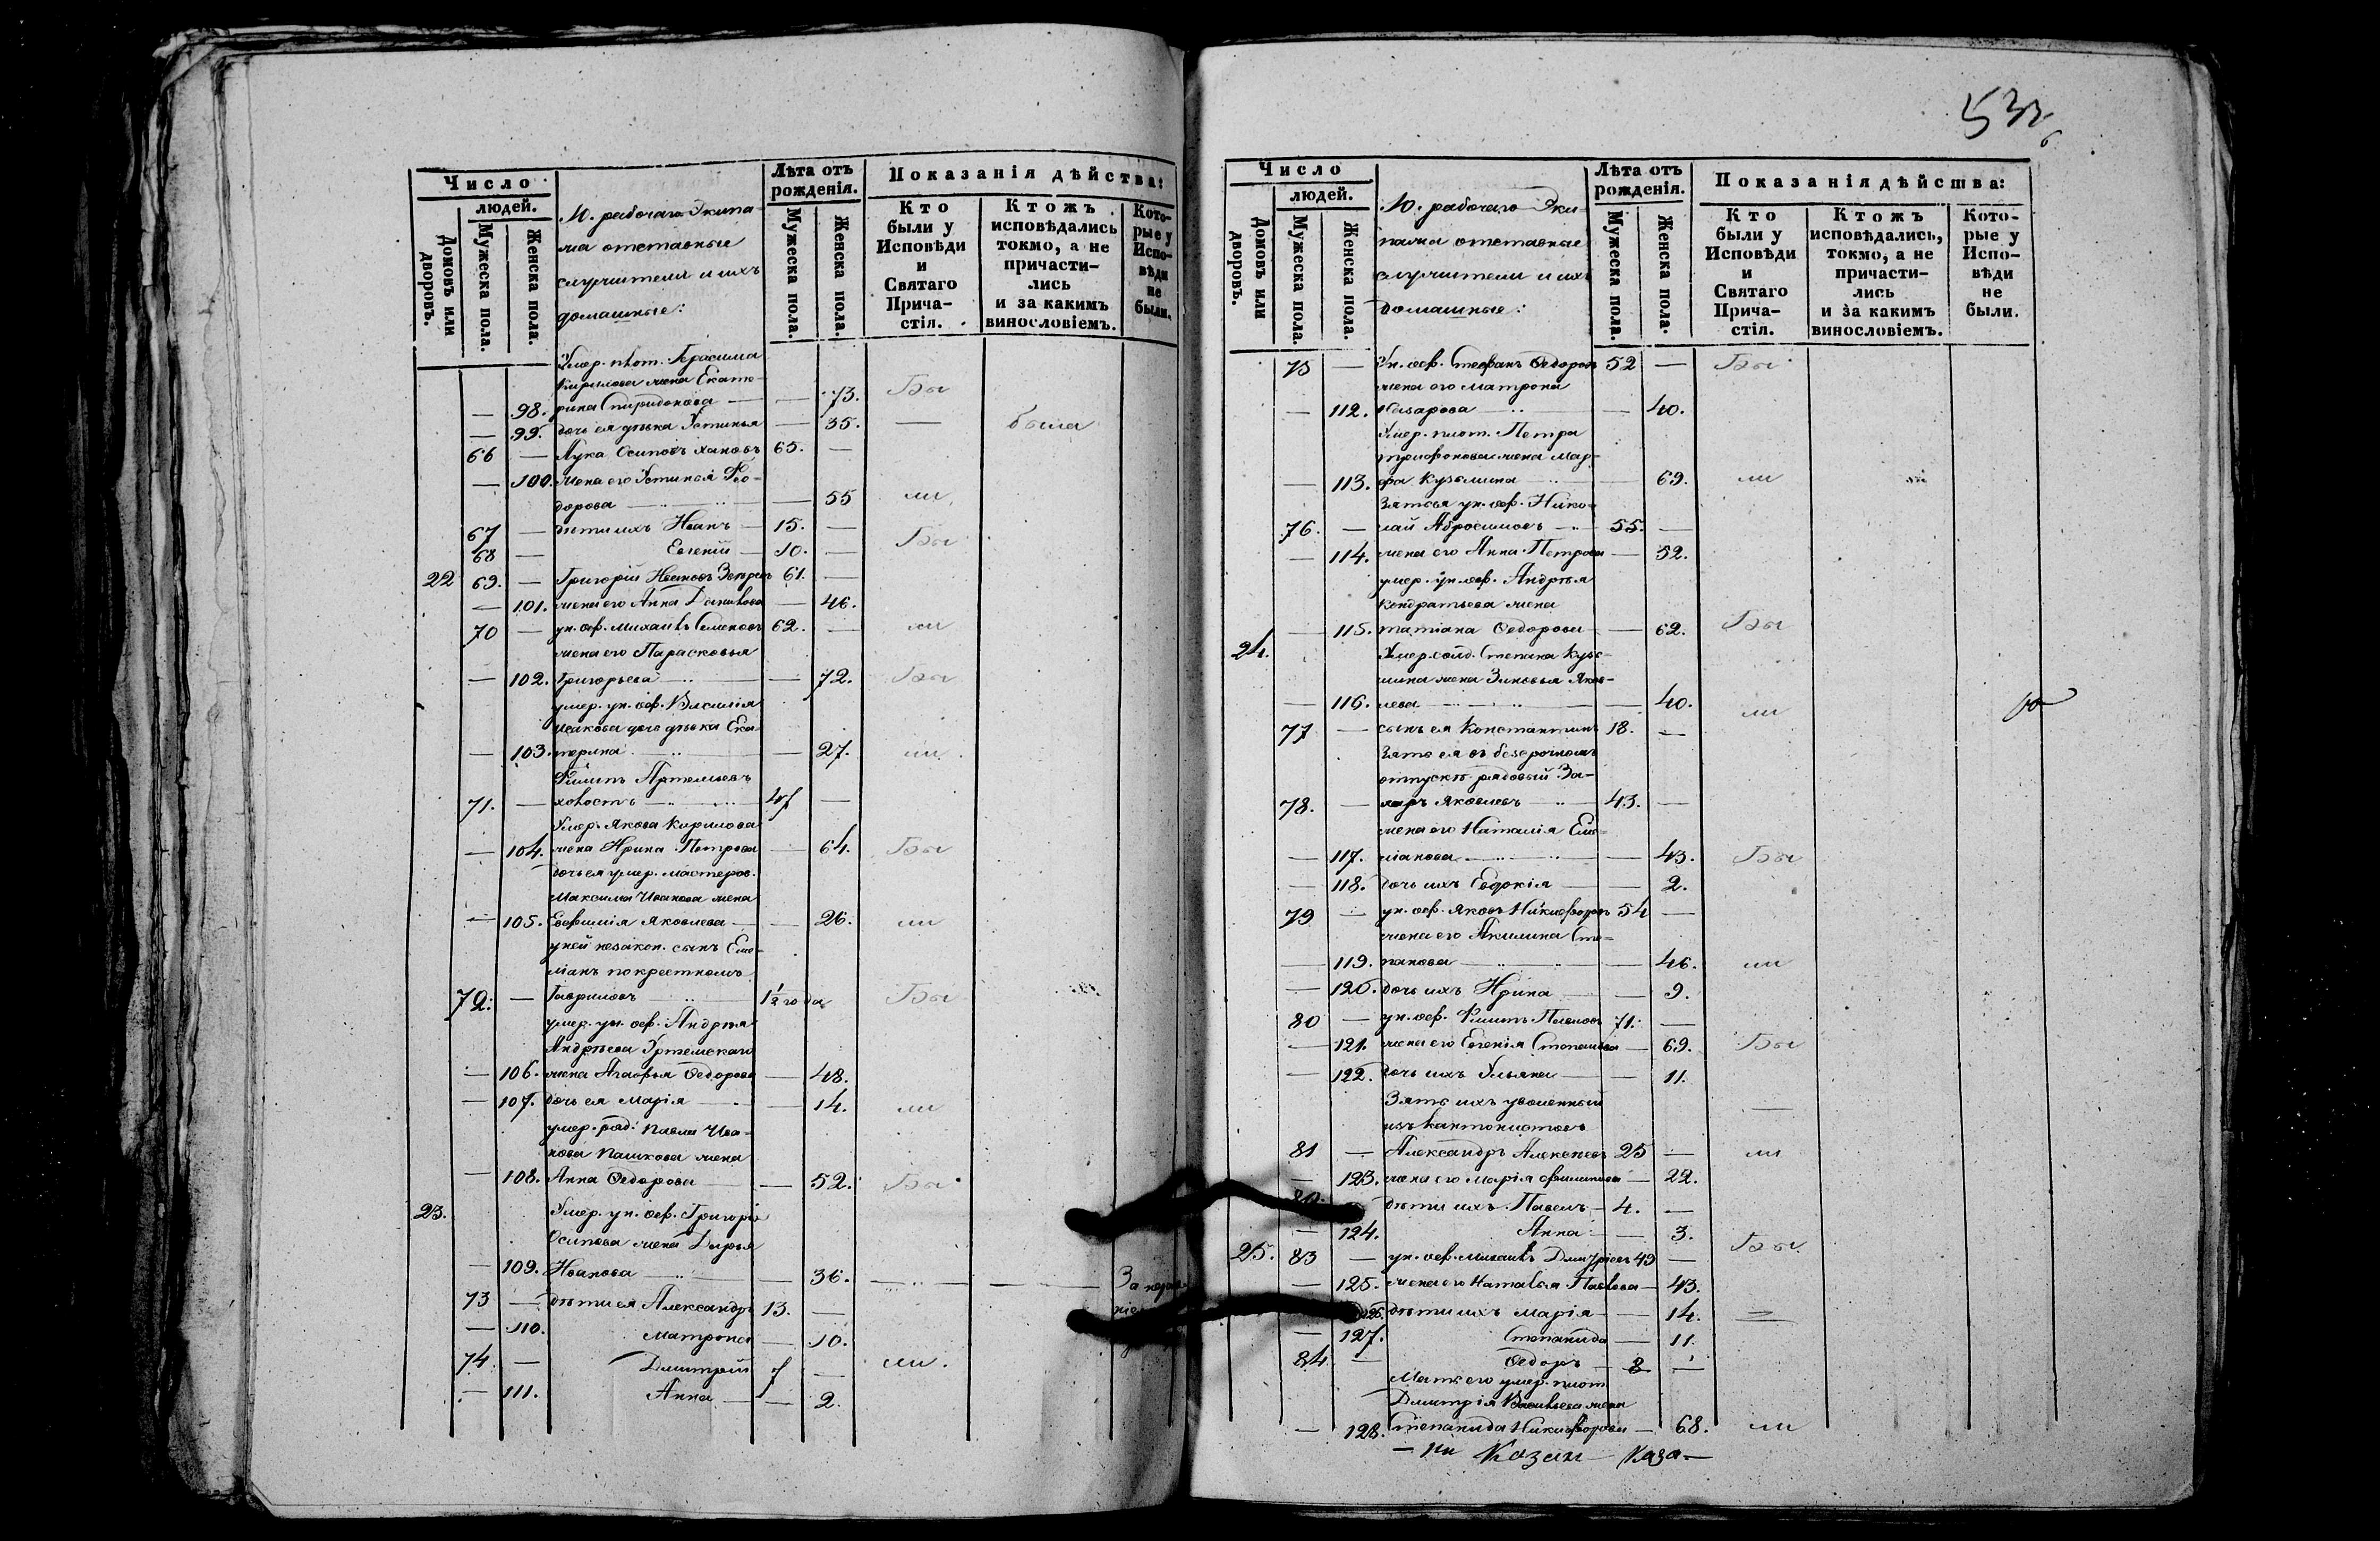 Число
людей.
Домовъ или дворовъ.
Мужеска пола.
Женска пола.
10. рабочаго Экипа-
жа отставные
служители и ихъ
домашные:
Лѣта отъ рожденія.
Мужеска пола.
Женска пола.
Показанія дѣйства:
Кто были у Исповѣди и Святаго Прича-стія.
Ктожъ исповѣдались токмо, а не причасти-лись и за какимъ винословіемъ.
Кото-рые у Испо-вѣди не были.
Умер. плот. Герасима
Кирилова жена Екате-
— 98. рина Спиридонова — — 73. Бы
— 99. дочь ея дѣвка Устинья — 35. — была
66 — Лука Осиповъ 65. —
— 100. жена его Устинія Фео-
дорова — 55 ли
67 — дѣти ихъ Иванъ — 15. —
68 — Евгеній — 10. — Бы
22 69. — Григорій Ивановъ 61. —
— 101. жена его Анна Данилова — 46.
70 — ун. оф. Михаилъ Семеновъ 62. — ли
жена его Парасковья
— 102. Григорьева — 72. Бы
умер. ун. оф. Василія
Исакова дочь дѣвка Ека-
— 103. терина — 27. ли
Филипъ Артемьевъ
71. — хвостъ — 47 —
Умер. Якова Кирилова
— 104. жена Ирина Петрова — 64. Бы
дочь ея умер. мастеров.
Максима Иванова жена
— 105. Евфимія Яковлева — — 26. ли
у ней незакон. сынъ Еме-
ліанъ по крестному
72. — Гавриловъ 1½ года Бы
умер. ун. оф. Андрея
Андрѣева Уртемскаго
— 106. жена Агафья Ѳедорова — 48.
— 107. дочь ея Марія — — 14. ли
умер. ряд. Павла Ива-
нова Пашкова жена
— 108. Анна Ѳедорова — — 52. Бы
23. Умер. ун. оф. Григорія
Осипова жена Дарья
— 109. Иванова — — 36. — — За
73 — дѣти ея Александръ 13. —
— 110. Матрона — 10.
74 — Дмитрій 7 — ли.
— 111. Анна — — 2.
533
6
Число
людей.
Домовъ или дворовъ.
Мужеска пола.
Женска пола.
10. рабочаго Эки-
пажа отставные
служители и ихъ
домашные:
Лѣта отъ рожденія.
Мужеска пола.
Женска пола.
Показанія дѣйства:
Кто были у Исповѣди и Святаго Прича-стія.
Ктожъ исповѣдались, токмо, а не причасти-лись и за какимъ винословіемъ.
Кото-рые у Испо-вѣди не были.
75 — Ун. оф. Стефанъ Ѳедоровъ 52 — Бы
жена его Матрона
— 112. Назарова — — 40.
Умер. плот. Петра
Трифонова жена Мар-
— 113. фа Кузьмина — 69. ли
Зятья ун. оф. Нико-
76. — лай Абросимовъ — 55. —
— 114. жена его Анна Петрова — 52.
умер. ун. оф. Андрѣя
Кондратьева жена
— 115. Татіана Ѳедорова — 62. Бы
24. Умер. солд. Степана Кузь-
мина жена Зиновья Яков-
— 116. лева — — 40. ли
77 — сынъ ея Константинъ 18. —
Зять ея въ безсрочномъ
отпускѣ рядовый За-
78. — харъ Яковлевъ — 43. —
жена его Наталія Еме-
— 117. ліанова — — 43. Бы
— 118. дочь ихъ Евдокія — — 2.
79 — ун. оф. Яковъ Никифоровъ 54 —
жена его Акилина Сте-
— 119. панова — — 46. ли
— 120. дочь ихъ Ирина — — 9.
80 — ун. оф. Филипъ Павловъ 71. —
— 121. жена его Евгенія Степанова — 69. Бы
— 122. дочь ихъ Ульяна — — 11.
Зять ихъ уволенный
изъ кантонистовъ —
81 — Александръ Алексѣевъ 25 — ли
— 123. жена его Марія Филипова — 22.
82. дѣти ихъ Павелъ — 4. —
— 124. Анна — — 3.
25. 83 — ун. оф. Михаилъ Дмитріевъ 49 — Бы
— 125. жена его Наталья Павлова — 43.
126. дѣти ихъ Марія — — 14. —
— 127. Степанида — 11.
84 — Ѳедоръ — 8 —
Мать его умер. плот.
Дмитрія Васильева жена
— 128. Степанида Никифорова — 68. ли
Казан Каза